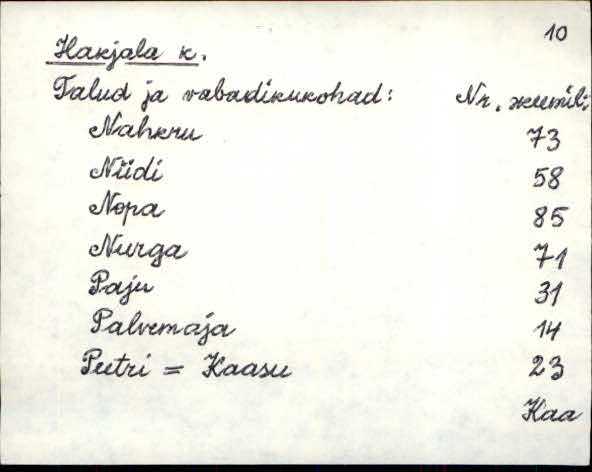 10
Hakjala k.
Talud ja vabadikukohad: Nr. skeemil:
Nahkru 73
Niidi 58
Nopa 85
Nurga 71
Paju 31
Palvemaja 14
Peetri = Kaasu 23
Kaa